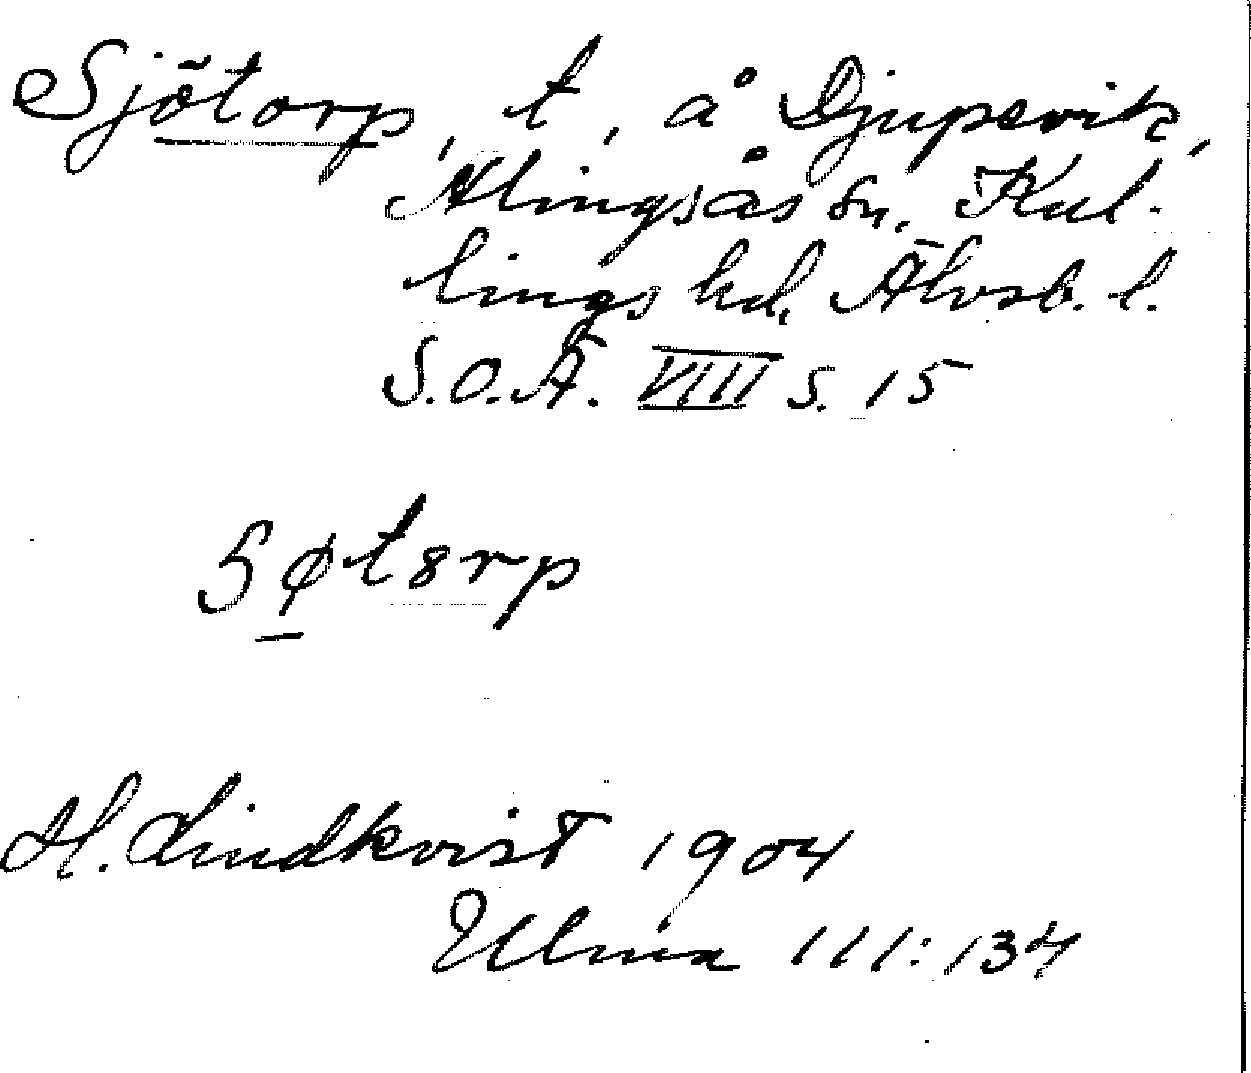 Sjötorp, t, å Djupevik,
Alingsås sn, Kul-
lings hd, Älvsb. l.
S.O.Ä. VIII s. 15
ʃøtɵrp
H. Lindkvist 1904
Ulma 111:134